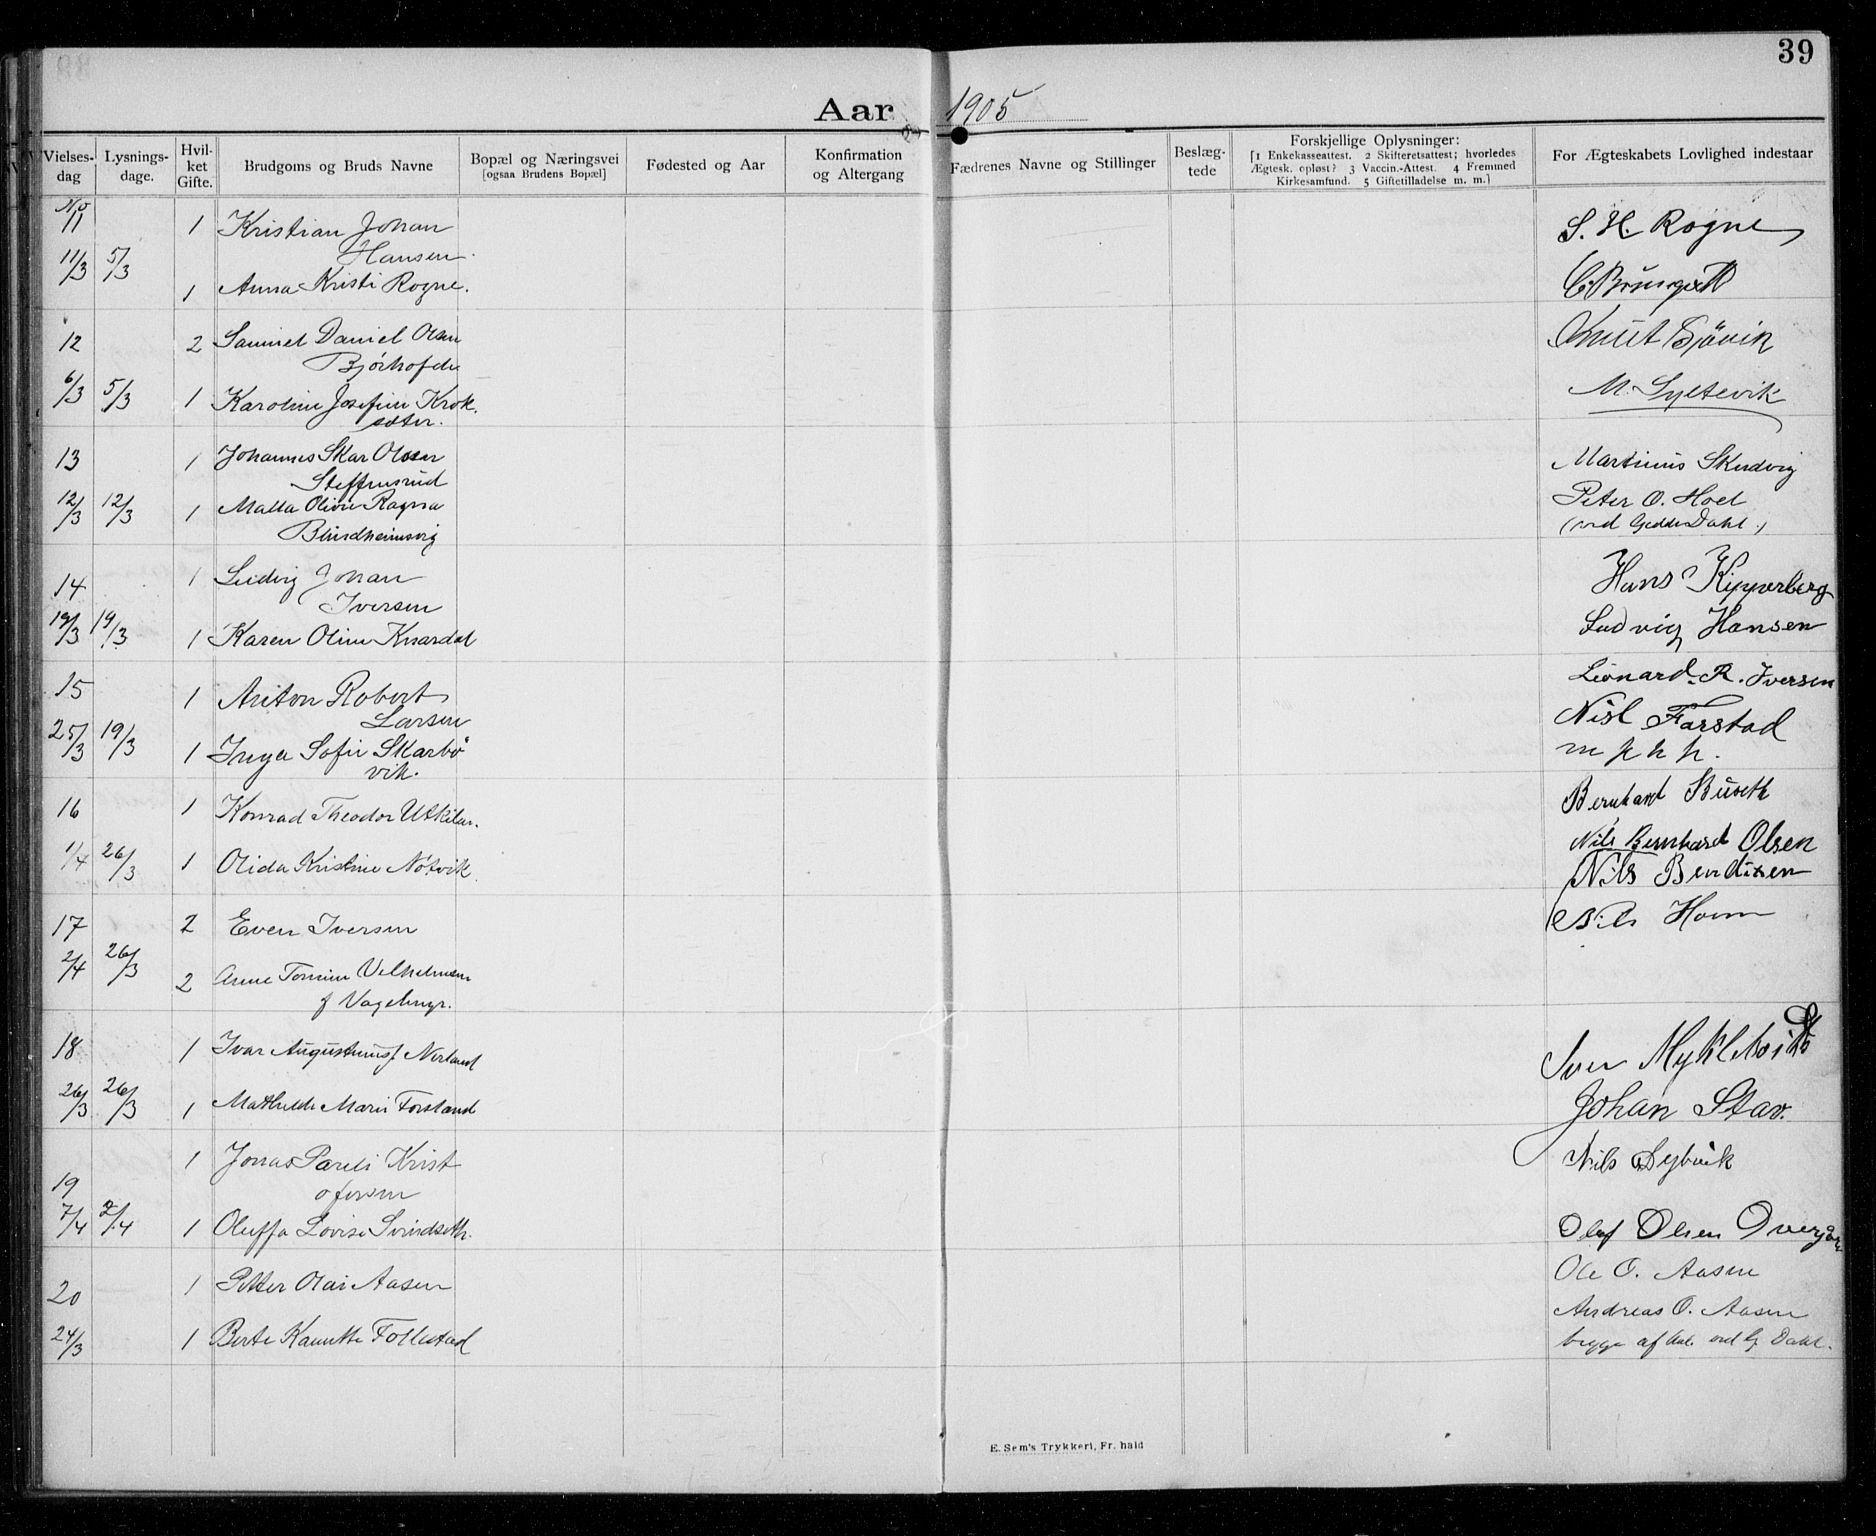 39
Aar 1905
Vielses-dag
Lysnings-dage.
Hvil-ket Gifte.
Brudgoms og Bruds Navne
Bopæl og Næringsvei
[ogsaa Brudens Bopæl]
Fødested og Aar
Konfirmation og Altergang
Fædrenes Navne og Stillinger
Beslæg-tede
Forskjellige Oplysninger:
[1 Enkekasseattest. 2 Skifteretsattest; hvorledes
Ægtesk. opløst? 3 Vaccin.-Attest. 4 Fremmed
Kirkesamfund. 5 Giftetilladelse m. m.]
For Ægteskabets Lovlighed indestaar
No
11 1 Kristian Johan S. H. Rogne
Hansen.
11/3 5/3
1 Anna Kristi Rogne.
12 2 Samuel Daniel Olsen Knut Sjøvik
6/3 5/3 1 Karoline Josefine Krok M. Syltevik
sæter.
13 1 Johannes Skar Olsen Martinus Skudvig
12/3 12/3 1 Malla Olivie Ragna Peter O. Hoel
Blindheimsvig (ved Gedde Dahl.)
14 1 Ludvig Johan Hans Kipperberg
Iversen
19/3 19/3 1 Karen Oline Knardal Ludvig Hansen
15 1 Anton Robert Leonard R. Iversen
Larsen
25/3 19/3 1 Inga Sofie Skarbø Farstad
vik. m p h p.
16 1 Konrad Theodor Bernhard Buseth
1/4 26/3 1 Olida Kristine Nils Bernhard Olsen
Nils Bendixen
17 2 Even Iversen Nils
2/4 26/3 2 Anne
18 1 Ivar Nerland Iver
26/3 26/3 1 Mathilde Marie Forstand Johan Stav.
19 1 Jonas Krist Nils
ofersen
7/4 2/4 1 Oluffa Lovise Svindseth. Olaf Olsen
20 1 Petter Olai Aasen Ole O. Aasen
Andreas O. Aasen
24/3 1 Berte Follestad begge af Aal. ved G. Dahl.
E. Sem's Trykkeri, Fr. hald